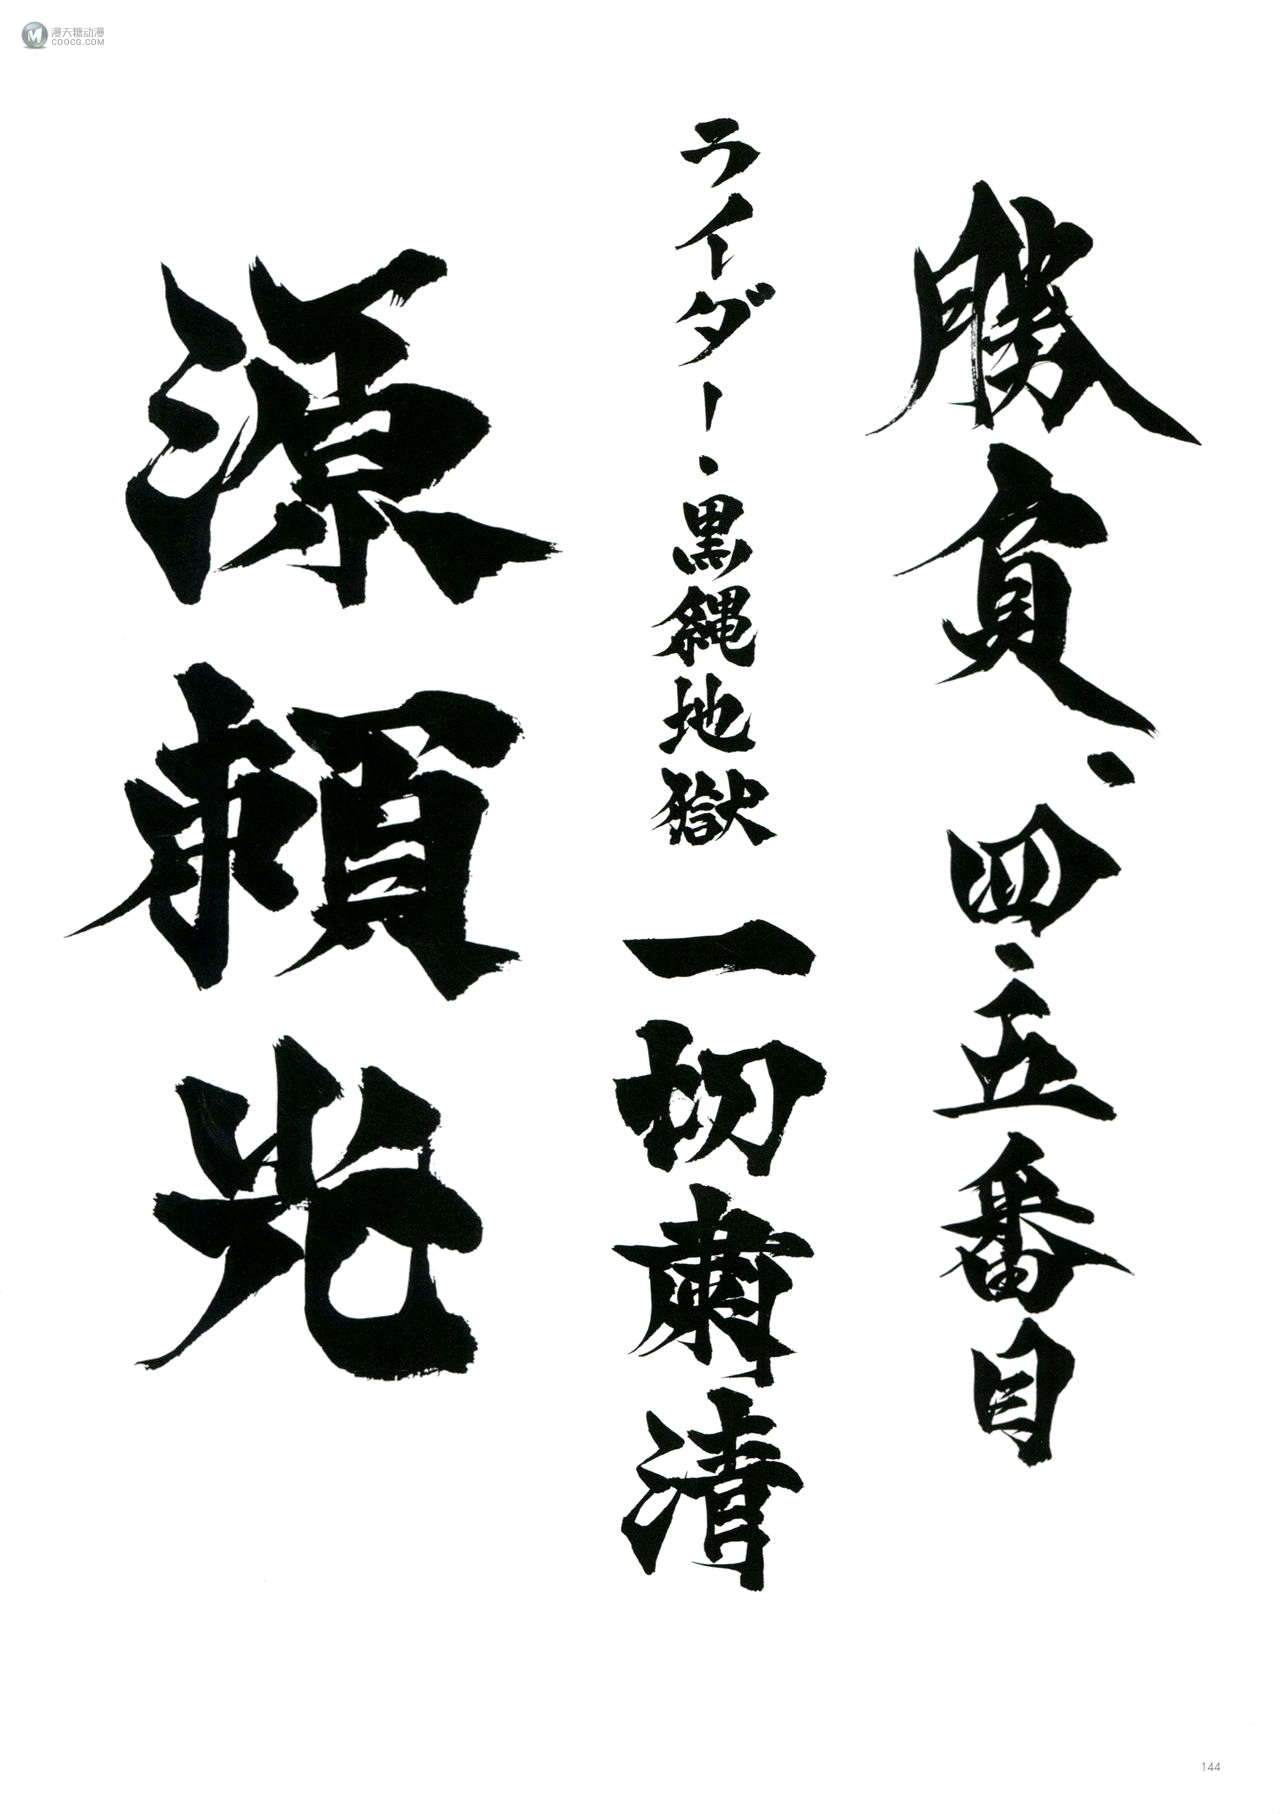 漫天糖动漫
COOCG.COM
勝負、四・五番目
ライダー・黒縄地獄
一切粛清
源頼光
144